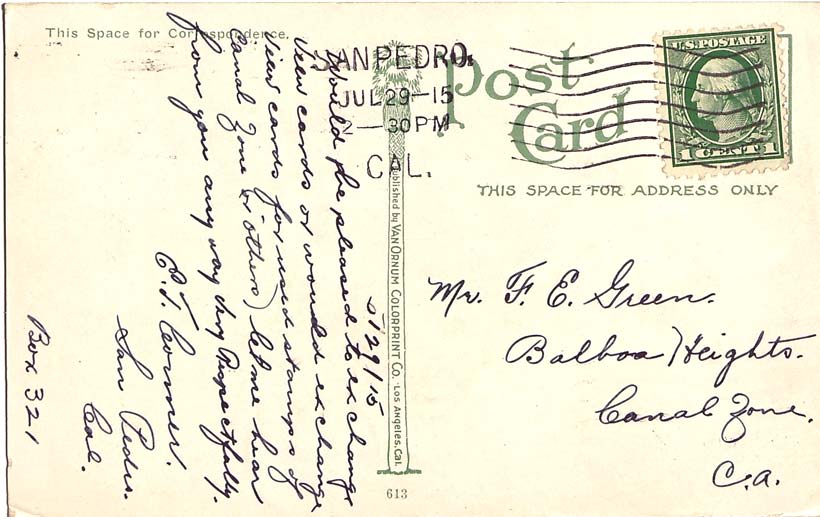 This Space for Correspondence.
5/29/15
Would be pleased to exchange
view cards or would exchange
view cards for used stamps of
Canal Zone (& others) let me hear
from you any way Respectfully.
San Pedro.
Cal.
Box 321
SAN PEDRO,
JUL 29-15
-30PM
CAL.
Post
Card
U.S.POSTAGE
1 CENT 1
THIS SPACE FOR ADDRESS ONLY
Mr. F. E. Green.
Balboa Heights.
Canal Zone.
C.a.
Published by VAN ORNUM COLORPRINT CO. LOS ANGELES, CAL.
613